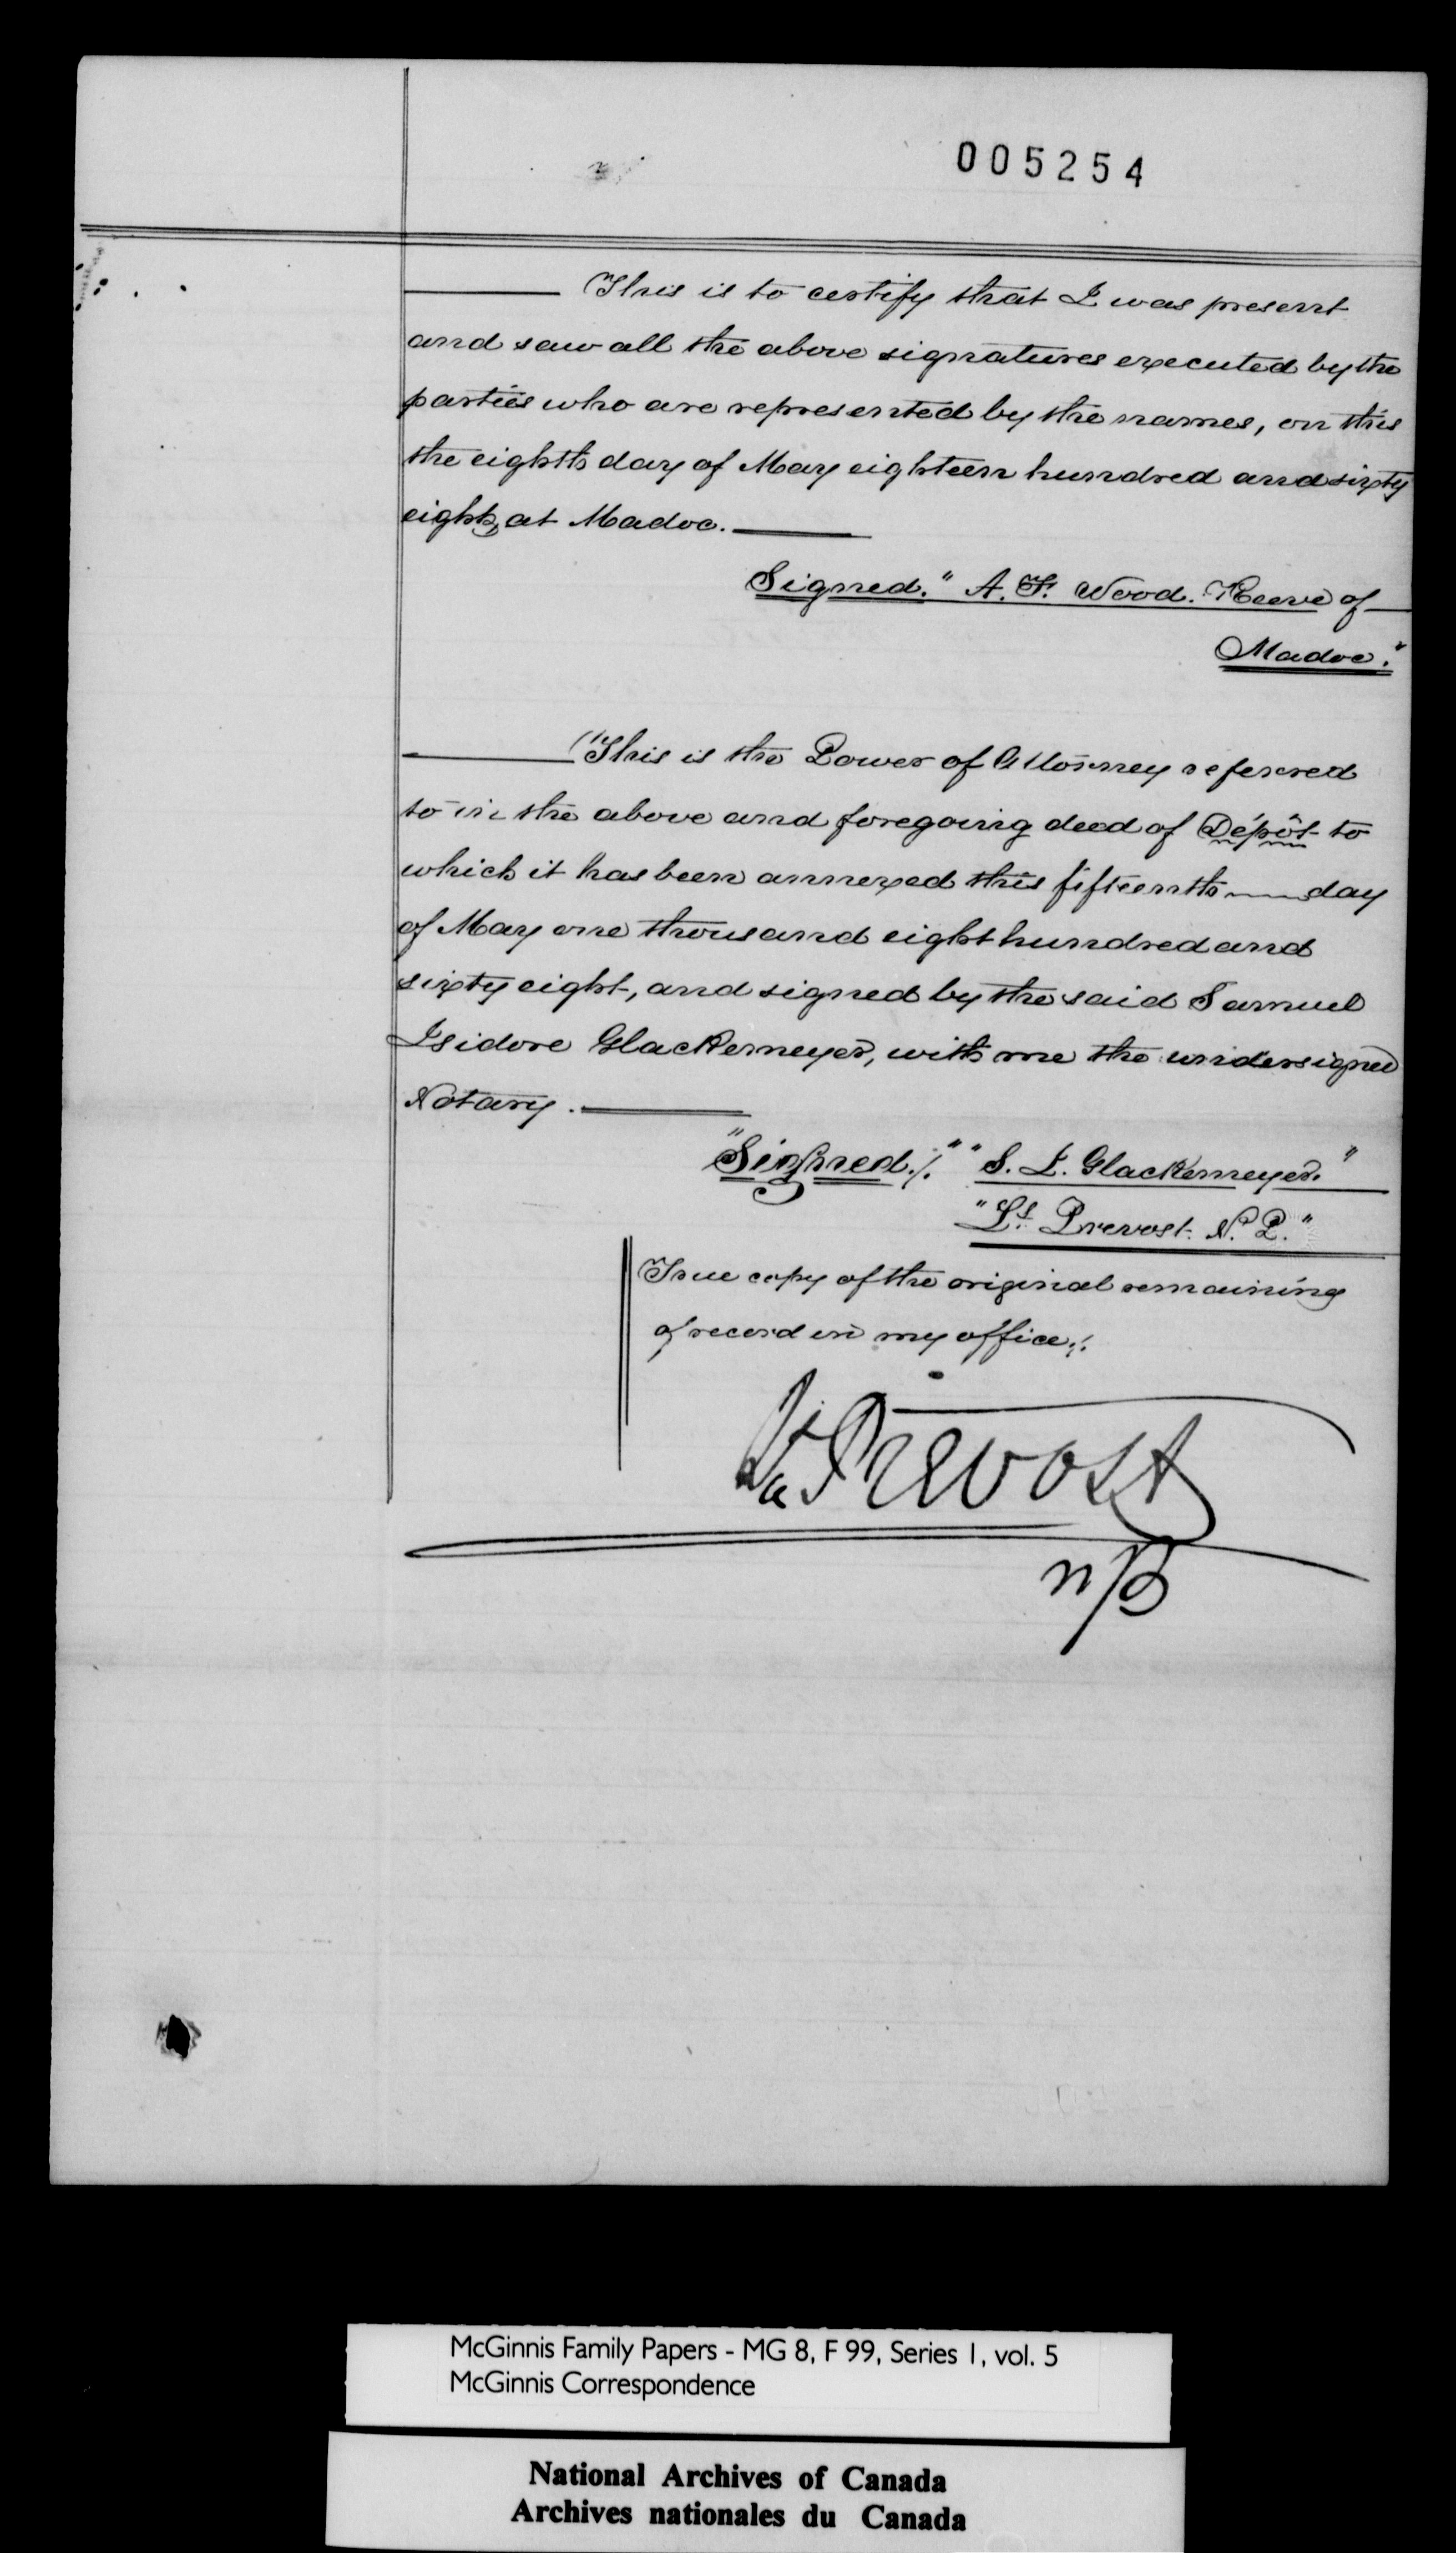 005254
This is to certify that I was present
and saw all the above signatures executed by the
parties who are represented by the names, on this
the eighth day of May eighteen hundred and sixty
eight, at Madoc.
Signed. " A. F. Wood. Reeve of
Madoc."
"This is the Power of Attorney referred
to in the above and foregoing deed of Dépôt to
which it has been annexed this fifteenth day
of May one thousand eight hundred and
sixty eight, and signed by the said Samuel
Isidore Glackemeyer, with me the undersigned
Notary.
"Signed./." "S. I. Glackemeyer."
"Ls. Prevost. N. P."
True copy of the original remaining
of record in my office./.
Ls Prévost
NP
McGinnis Family Papers - MG 8, F 99, Series 1, vol. 5
McGinnis Correspondence
National Archives of Canada
Archives nationales du Canada